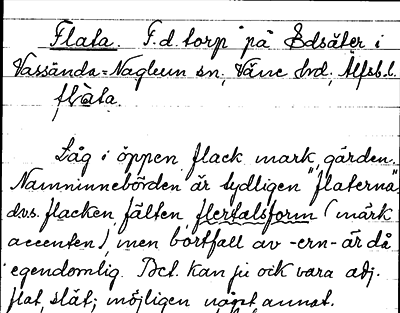 Flata. F.d. torp på Edsäter i
Vassända=Naglum sn, Väne hrd, Älfsb.l.
flàta.
Låg i öppen flack mark, gärden.
Namninnebörden är tydligen "flaterna"
dvs. flacken fälten flertalsform (märk
accenten), men bortfall av -ern- är då
egendomlig. Det kan ju ock vara adj.
flat, slät; möjligen något annat.